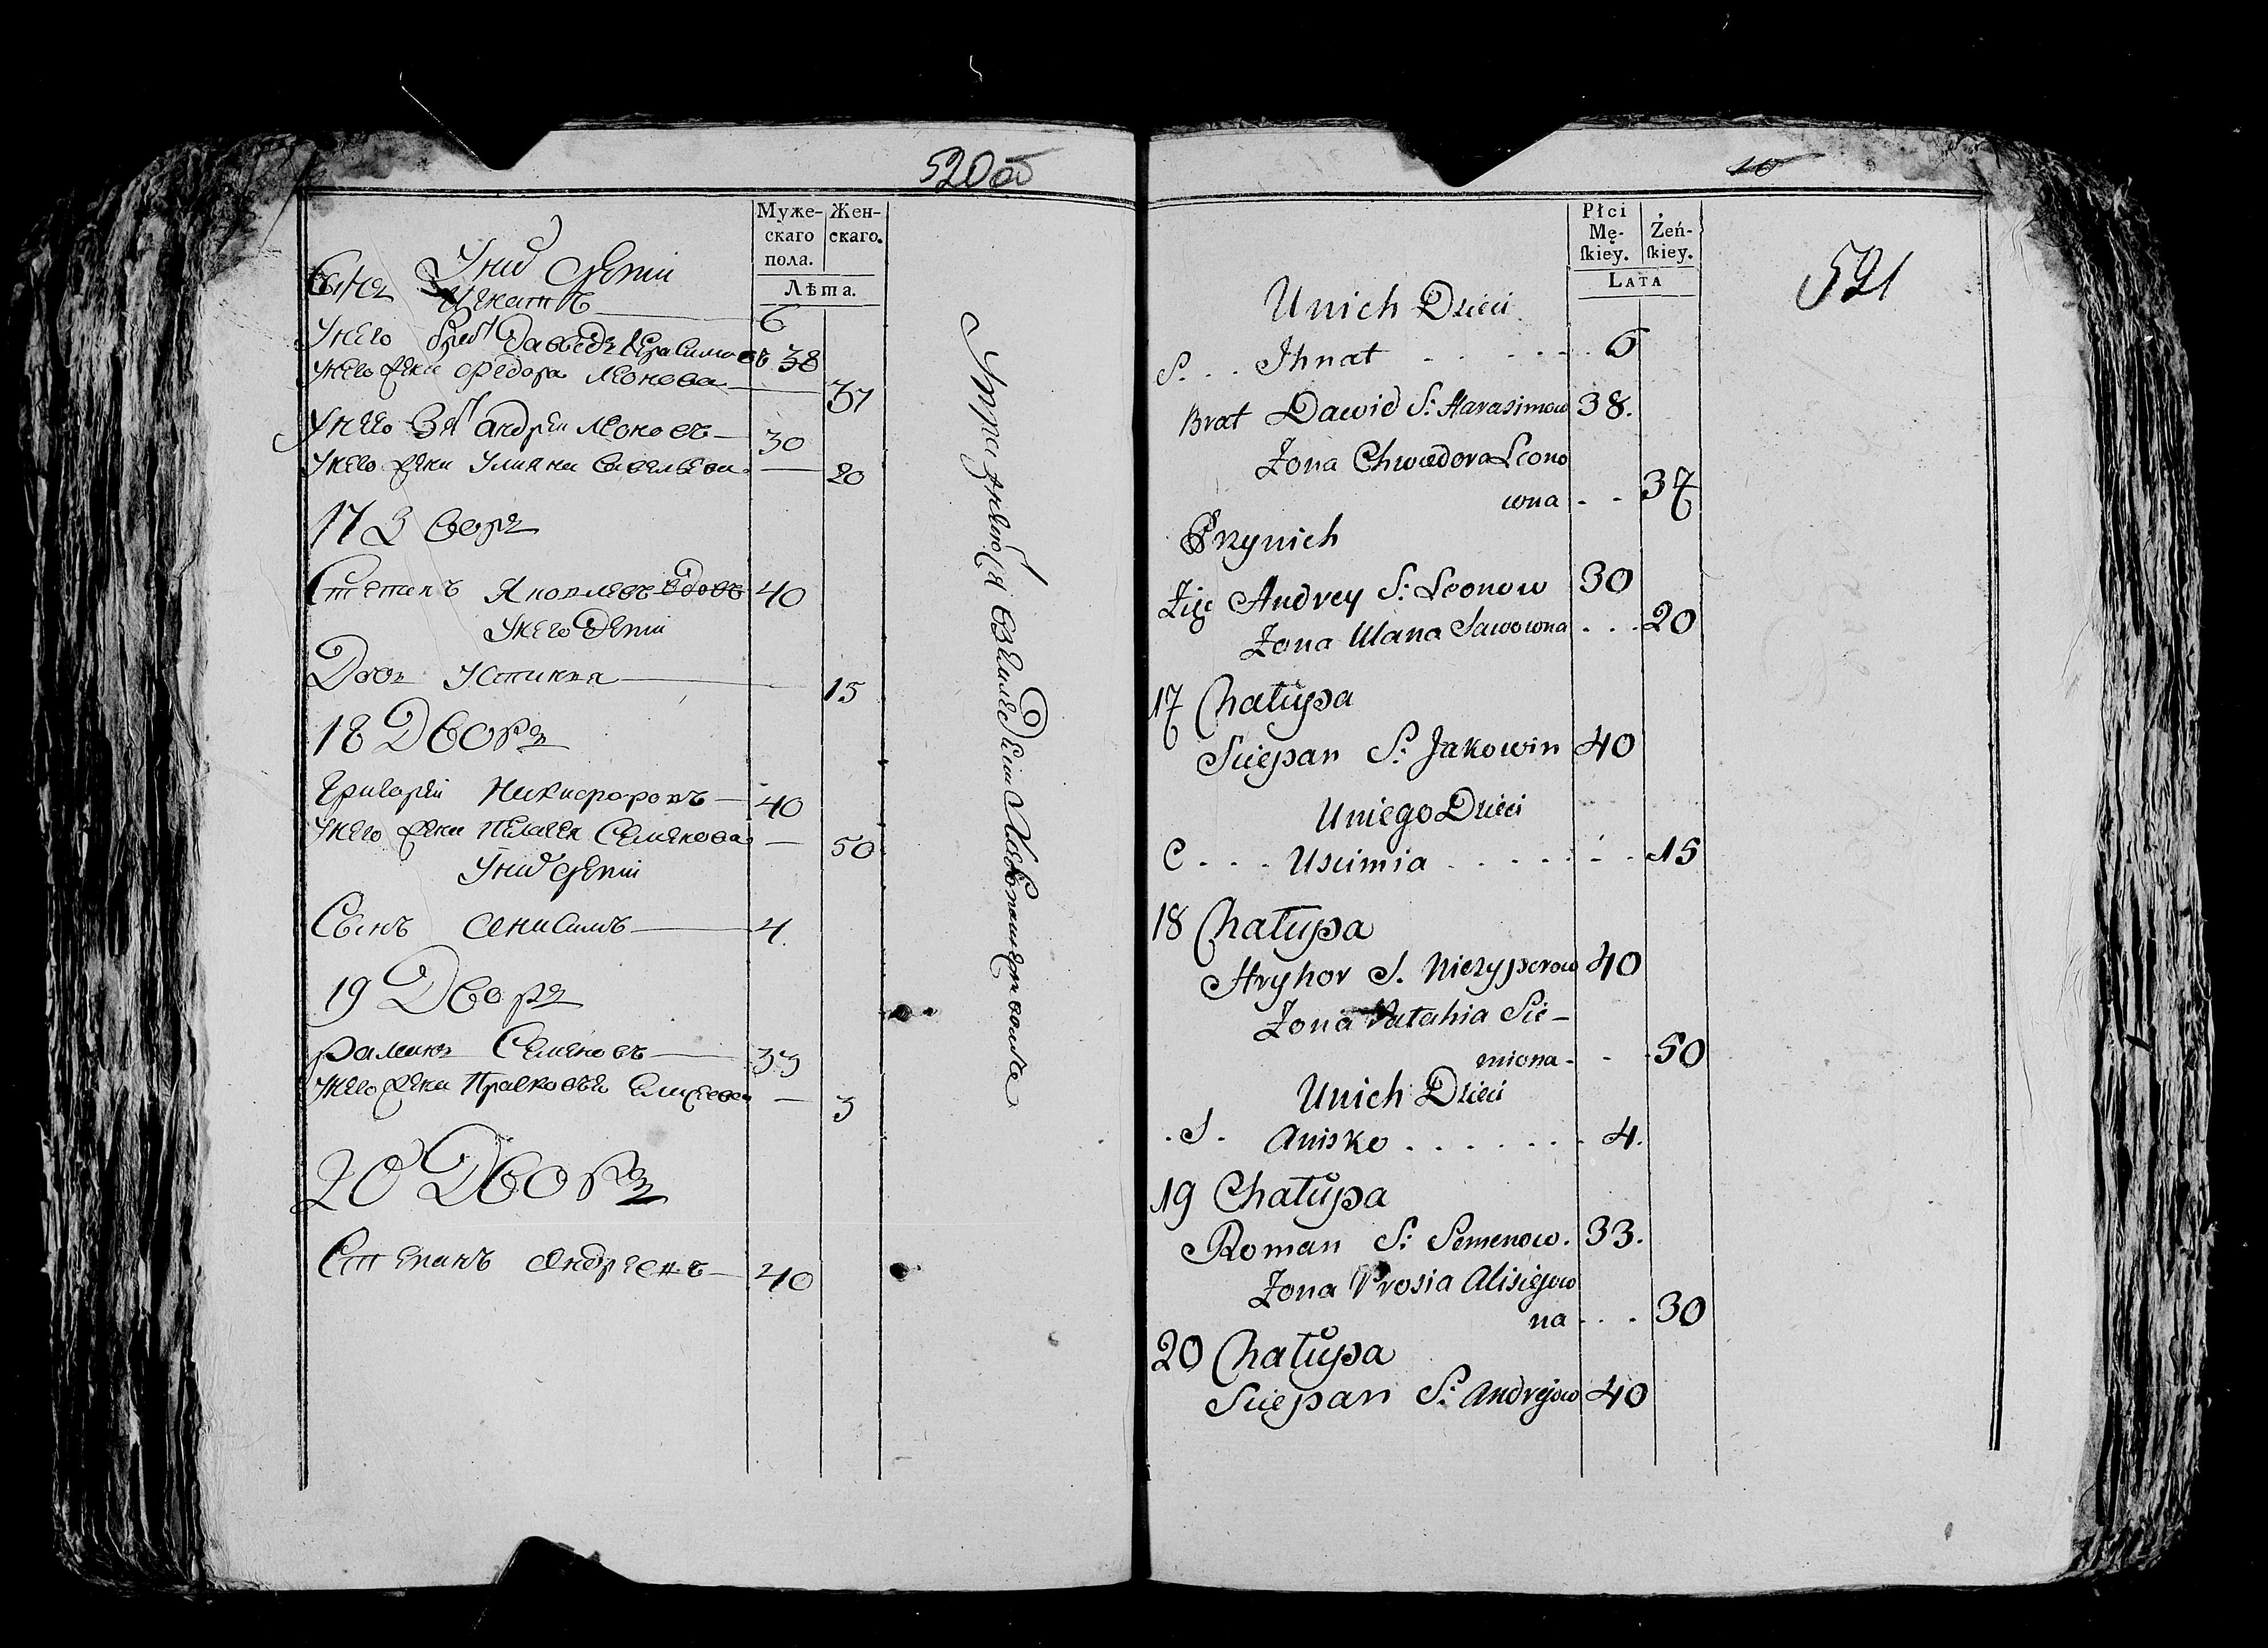 520 об
Муже-
скаго
пола.
Жен-
скаго.
Лѣта.
У нид дети
Сынъ Игнатъ 6
У него брат Давыдъ Герасимовъ 38
У него жена Федора Леонова 37
У него Зят Андрей Леоновъ 30
У него жена Улияна Савельева 20
17 Дворъ
Степанъ Яковлевъ вдовъ 40
У него дети
Доч Устинья 15
18 Дворъ
Григорей Никифоровъ 40
У него жена Пелагея Семенова 50
У нид дети
Сынъ Анисимъ 4
19 Дворъ
Раман Семеновъ 33
У него жена Прасковья Елисеева 3
20 Дворъ
Степанъ Андреевъ 40
10
521
Płci
Mę-
skiey.
Żeń-
skiey.
LATA
Unich Dzieci
S. . . Ihnat . . . . . . . 6
Brat Dawid S: Harasimow 38.
Zona Chwiedora Leono
wna . . 37
Przynich
Zięc Andrey S: Leonow 30
Zona Ulana Sawowna . . . 20
17 Chałupa
Sciepan S: Jakowin 40
Uniego Dzieci
C . . . Uscimia . . . . . . . . 15
18 Chałupa
Hryhor S. Niczyperow 40
Zona Patahia Sie-
miona - . . 50
Unich Dzieci
. S . Anisko . . . . . . . 4.
19 Chałupa
Roman S: Semenow. 33.
Zona Prosia Alisiejow
na . . . 30
20 Chałupa
Sciepan S: Andrejow 40